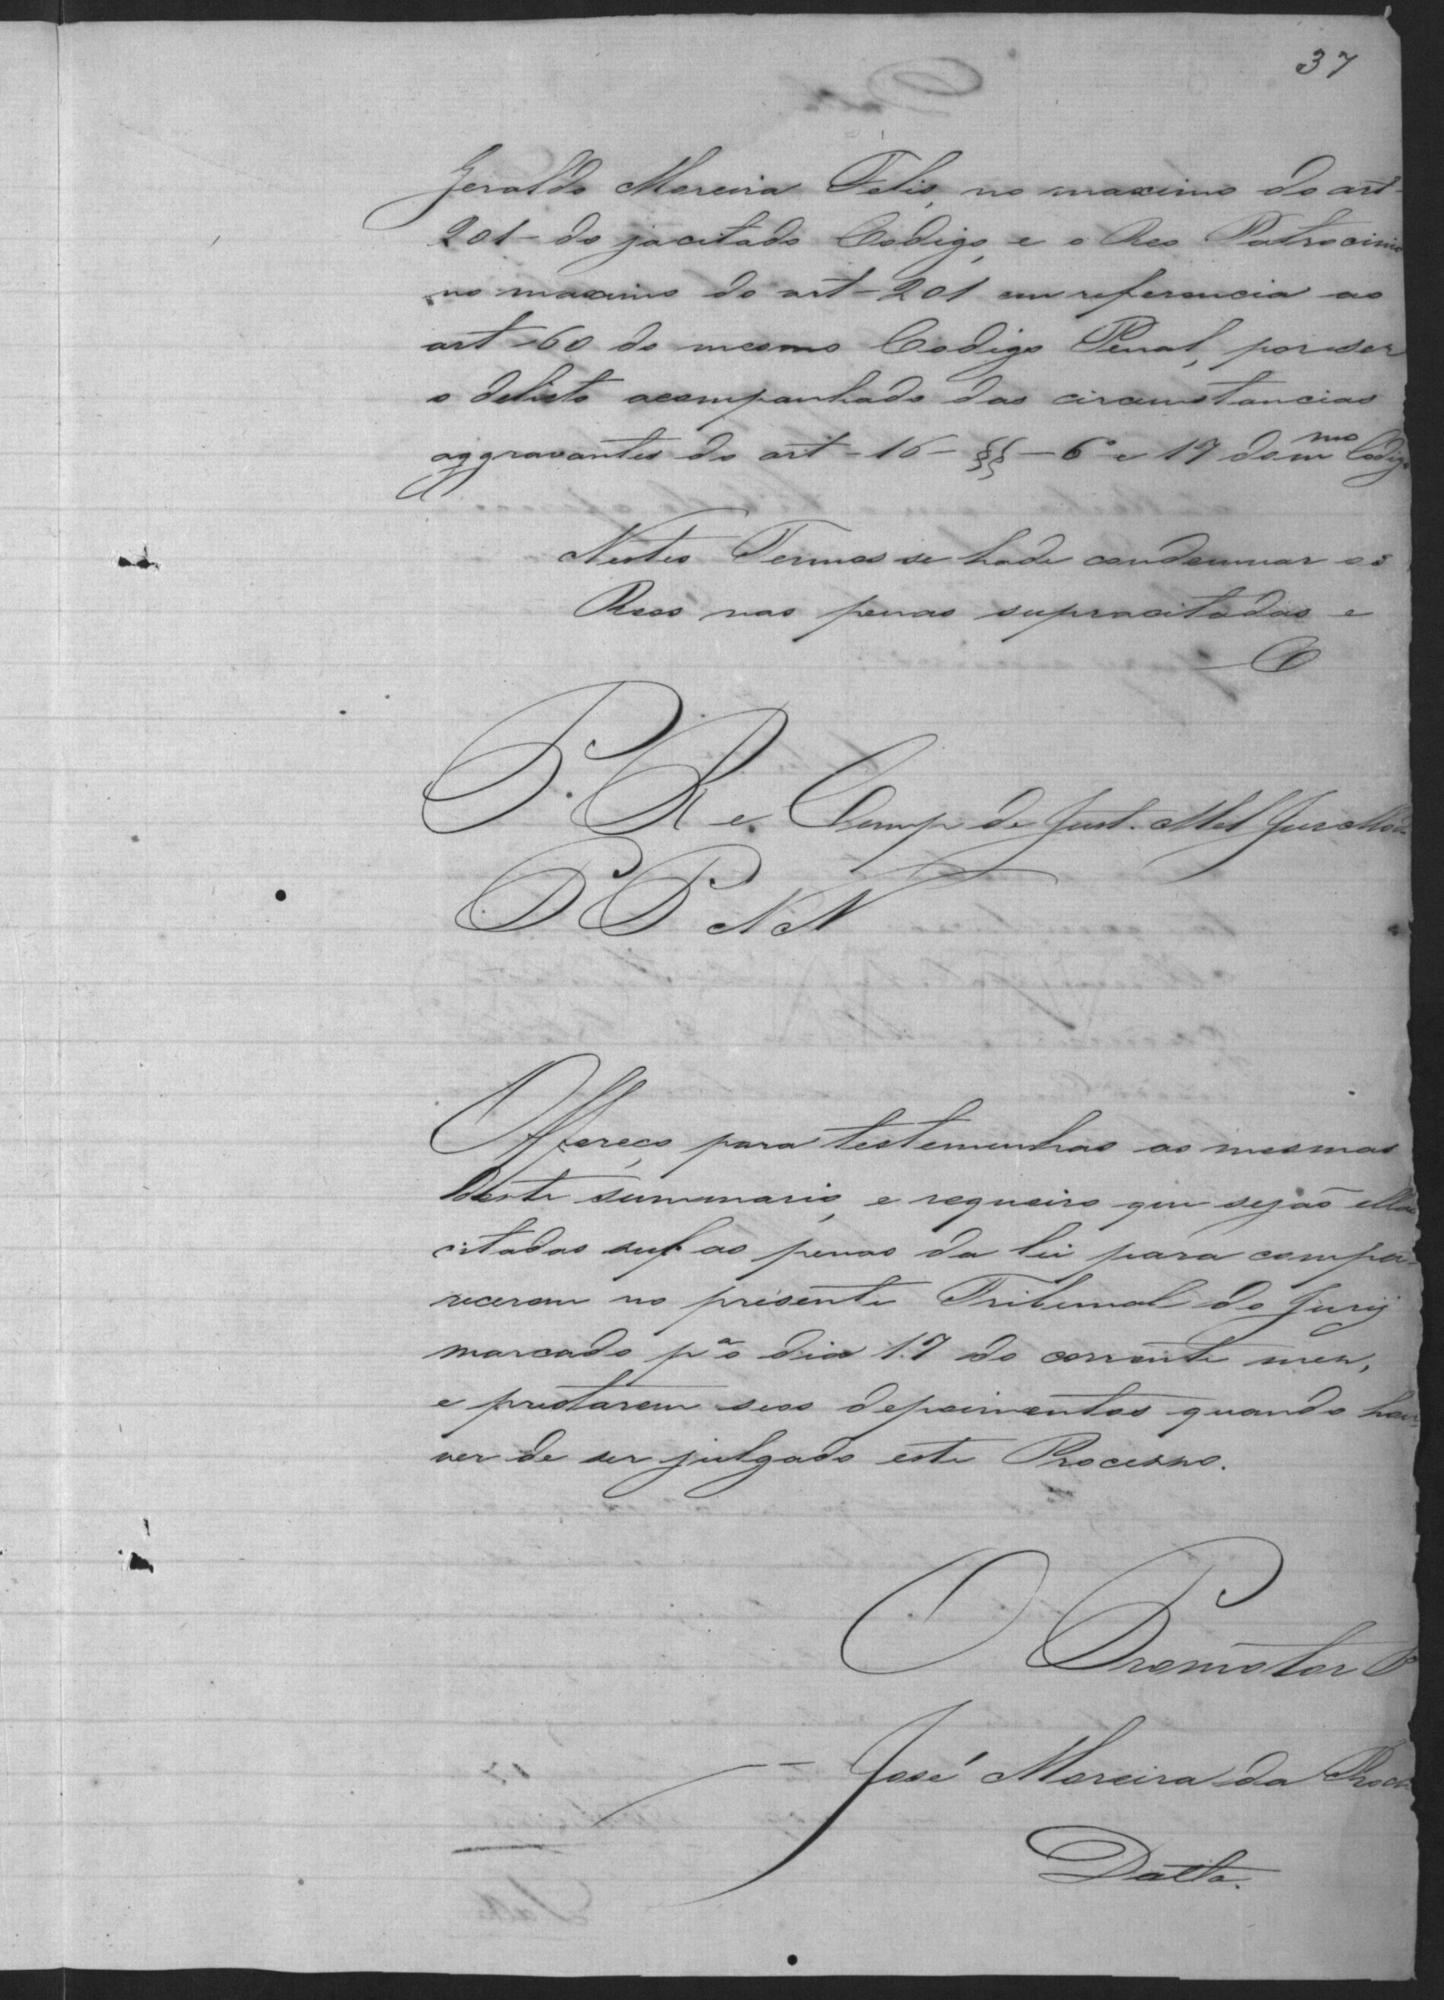 37
Geraldo Moreira Felis, no maximo do art-
201- do jacitado Codigo, e o Reo Patrocinio
no maximo do art-201 em referencia ao
art-60 do mesmo Codigo Penal, por ser
o delicto acompanhado das circunstancias
aggravantes do art-16- §§-6º e 17 do mmo Codigo
Nestes Termos se hade condemnar os
Reos nas penas supracitadas e
P. R e Comp de Just.
P P N N
Offereço para testemunhas as mesmas
deste summario, e requeiro que sejão ellas
citadas sub as penas da lei para compa-
recerem no presente Tribunal do Jury
marcado pª o dia 17 do corrente mez,
e prestarem seos depoimentos quando hou-
ver de ser julgado este Processo.
O Promotor P
José Moreira da Rocha
Datta.